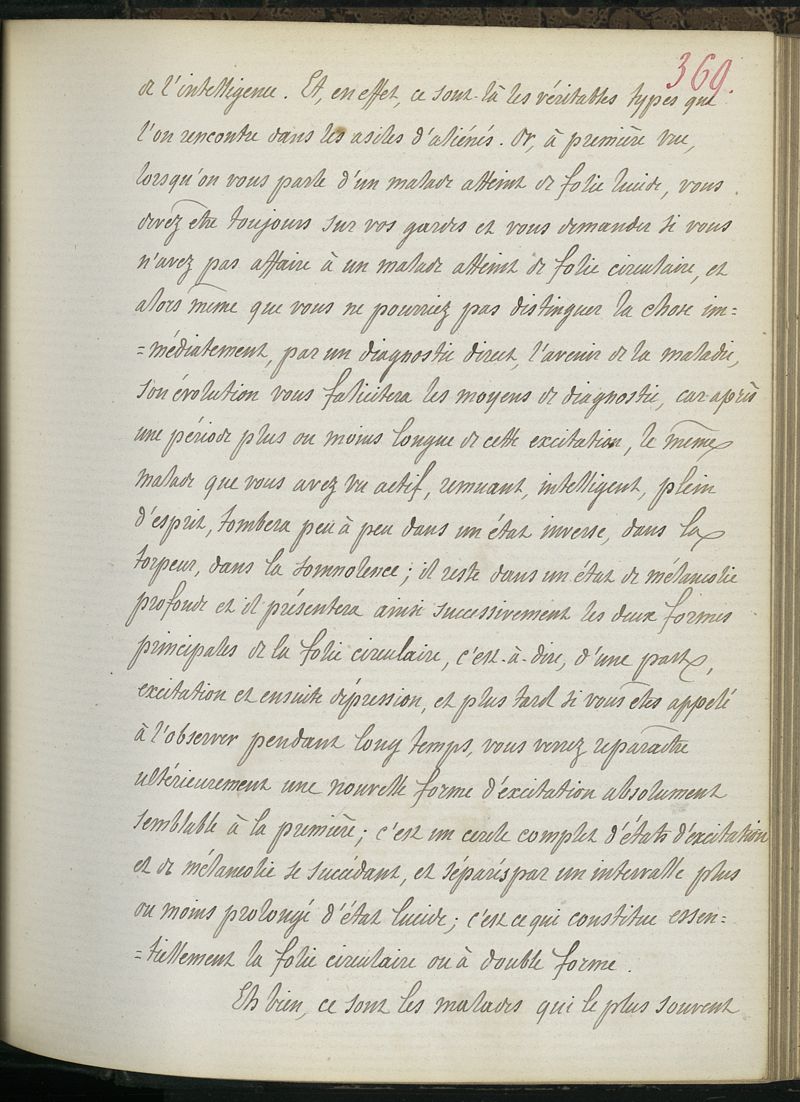 369.
de l'intelligence. Et, en effet, ce sont là les véritables types que
l'on rencontre dans les asiles d'aliénés. Or, à première vue,
lorsqu'on vous parle d'un malade atteint de folie lucide, vous
devez être toujours sur vos gardes et vous demander si vous
n'avez pas affaire à un malade atteint de folie circulaire, et
alors même que vous ne pourriez pas distinguer la chose im=
=médiatement, par un diagnostic direct, l'avenir de la maladie,
son évolution vous falicitera les moyens de diagnostic, car après
une période plus ou moins longue de cette excitation, le même
malade que vous avez vu actif, remuant, intelligent, plein
d'esprit, tombera peu à peu dans un état inverse, dans la
torpeur, dans la somnolence; il reste dans un état de mélancolie
profonde et il présentera ainsi successivement les deux formes
principales de la folie circulaire, c'est-à-dire, d'une part,
excitation et ensuite dépression, et plus tard si vous êtes appelé
à l'observer pendant long temps, vous verrez reparaître
ultérieurement une nouvelle forme d'excitation absolument
semblable à la première; c'est un cercle complet d'états d'excitation
et de mélancolie se succédant, et séparés par un intervalle plus
ou moins prolongé d'état lucide; c'est ce qui constitue essen=
=tiellement la folie circulaire ou à double forme.
Eh bien, ce sont les malades qui le plus souvent